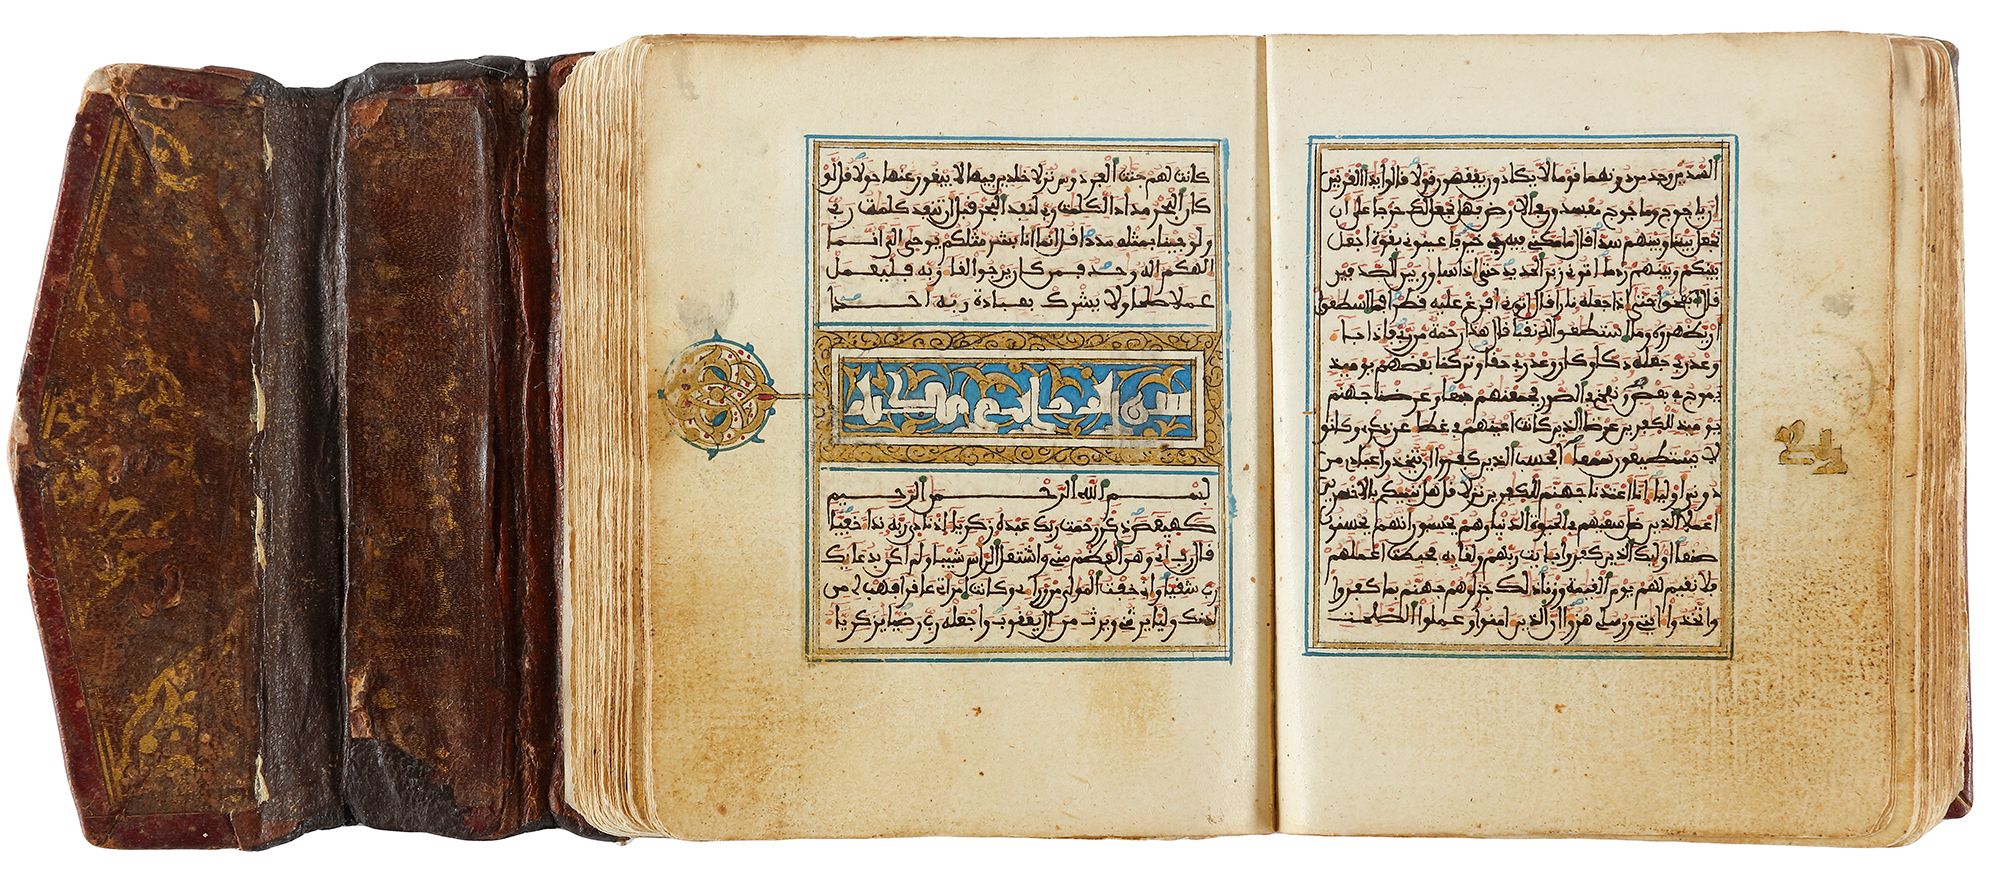 السدين وجد من دونهما قوما لا يكادون يفقهون قولا قالوا يذا القرنين
ان ياجوج وماجوج مفسدون في الارض فهل نجعل لك خرجا على ان
تجعل بيننا وبينهم سدا قال ما مكني فيه ربي خير فاعينوني بقوة اجعل
بينكم وبينهم ردما اتوني زبر الحديد حتى اذا ساوى بين الصدفين
قال انفخوا حتى اذا جعله نارا قال اتوني افرغ عليه قطرا فما اسطعوا
ان يظهروه وما استطعوا له نقبا قال هذا رحمة من ربي فاذا جا
وعد ربي جعله دكا وكان وعد ربي حقا وتركنا بعضهم يوميذ
يموج في بعض ونفخ في الصور فجمعنهم جمعا وعرضنا جهنم
يوميذ للكفرين عرضا الذين كانت اعينهم في غطا عن ذكري وكانوا
لا يستطيعون سمعا افحسب الذين كفروا ان يتخذوا عبادي من
دوني اوليا انا اعتدنا جهنم للكفرين نزلا قل هل ننبيكم بالاخسرين
اعملا الذين ضل سعيهم في الحيوة الدنيا وهم يحسبون انهم يحسنون
صنعا اوليك الذين كفروا بايت ربهم ولقايه فحبطت اعملهم
فلا نقيم لهم يوم القيمة وزنا ذلك جزاوهم جهنم بما كفروا
واتخذوا ايتي ورسلي هزوا ان الذين امنوا وعملوا الصلحت
كانت لهم جنت الفردوس نزلا خلدين فيها لا يبغون عنها حولا قل لو
كان البحر مدادا لكلمت ربي لنفد البحر قبل ان تنفد كلمت ربي
ولو جينا بمثله مددا قل انما انا بشر مثلكم يوحى الي انما
الهكم اله وحد فمن كان يرجوا لقا ربه فليعمل
عملا صلحا ولا يشرك بعبادة ربه احدا
بسم الله الرحمن الرحيم
كهيعص ذكر رحمت ربك عبده زكريا اذ نادى ربه ندا خفيا
قال رب اني وهن العظم مني واشتعل الراس شيبا ولم اكن بدعايك
رب شقيا واني خفت المولي من وراي وكانت امراتي عاقرا فهب لي من
لدنك وليا يرثني ويرث من ال يعقوب واجعله رب رضيا يزكريا